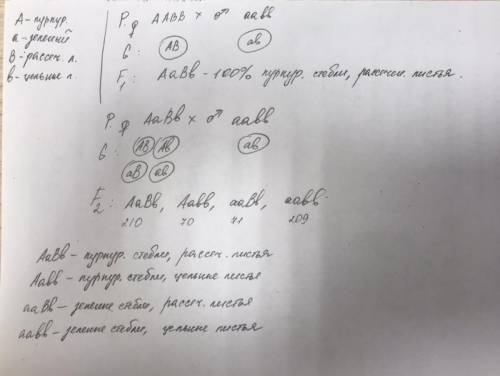 А - пурпур.
а - зеленый
В - рассеч. л.
в - цельные л.
P: ♀ AABB × ♂ aabb
G: AB ab
F₁: AaBb - 100% пурпур. стебли, рассечен. листья.
P: ♀ AaBb × ♂ aabb
G: AB Ab ab
aB ab
F₂: AaBb, Aabb, aaBb, aabb.
210 70 71 209
AaBb - пурпур. стебли, рассеч. листья
Aabb - пурпур. стебли, цельные листья
aaBb - зеленые стебли, рассеч. листья
aabb - зеленые стебли, цельные листья